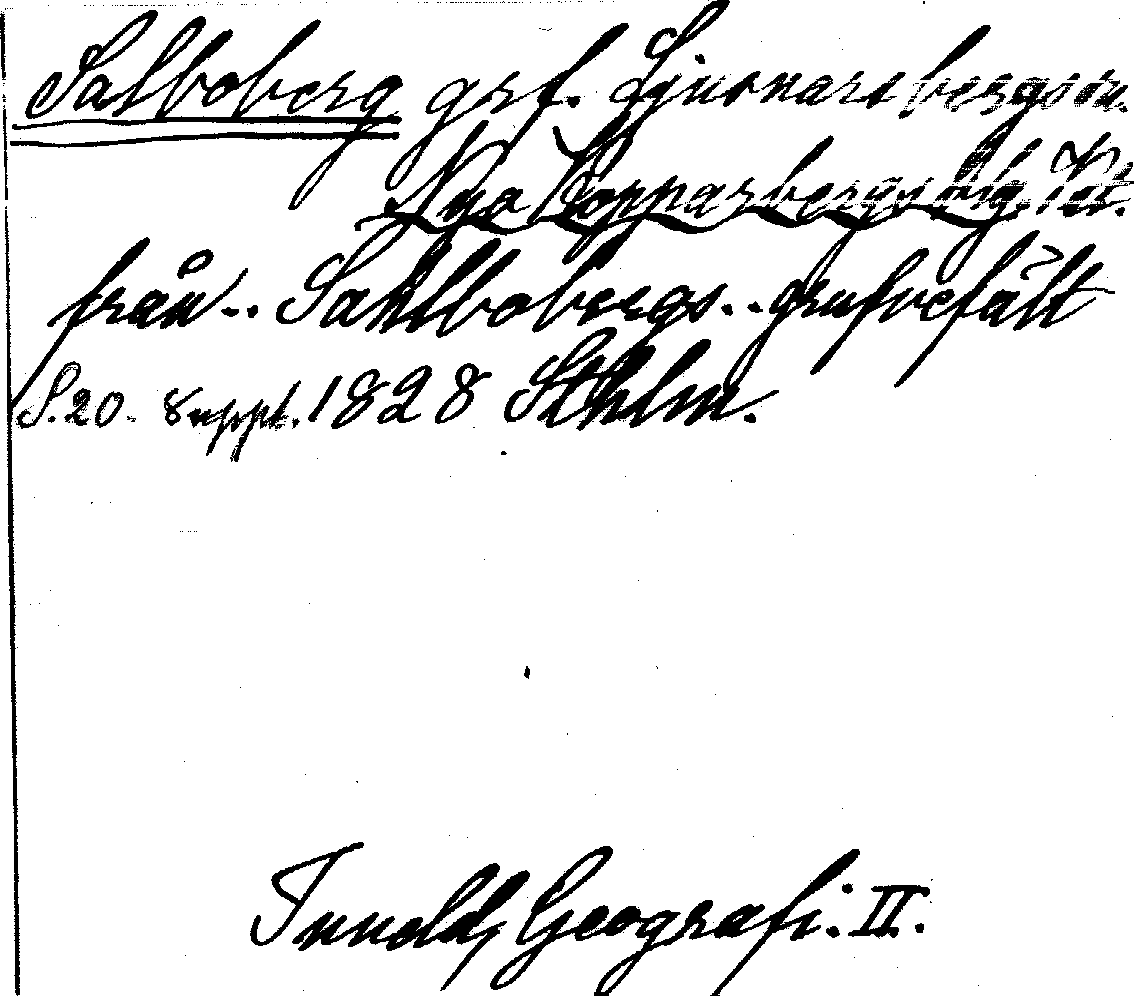 Salboberg grf. Ljusnarsbergs sn.
Nya Kopparbergs blg. Vst.
från.. Sahlbobergs.. grufvefält
S. 20. Suppl. 1828 Sthlm.
Tunelds Geografi. II.